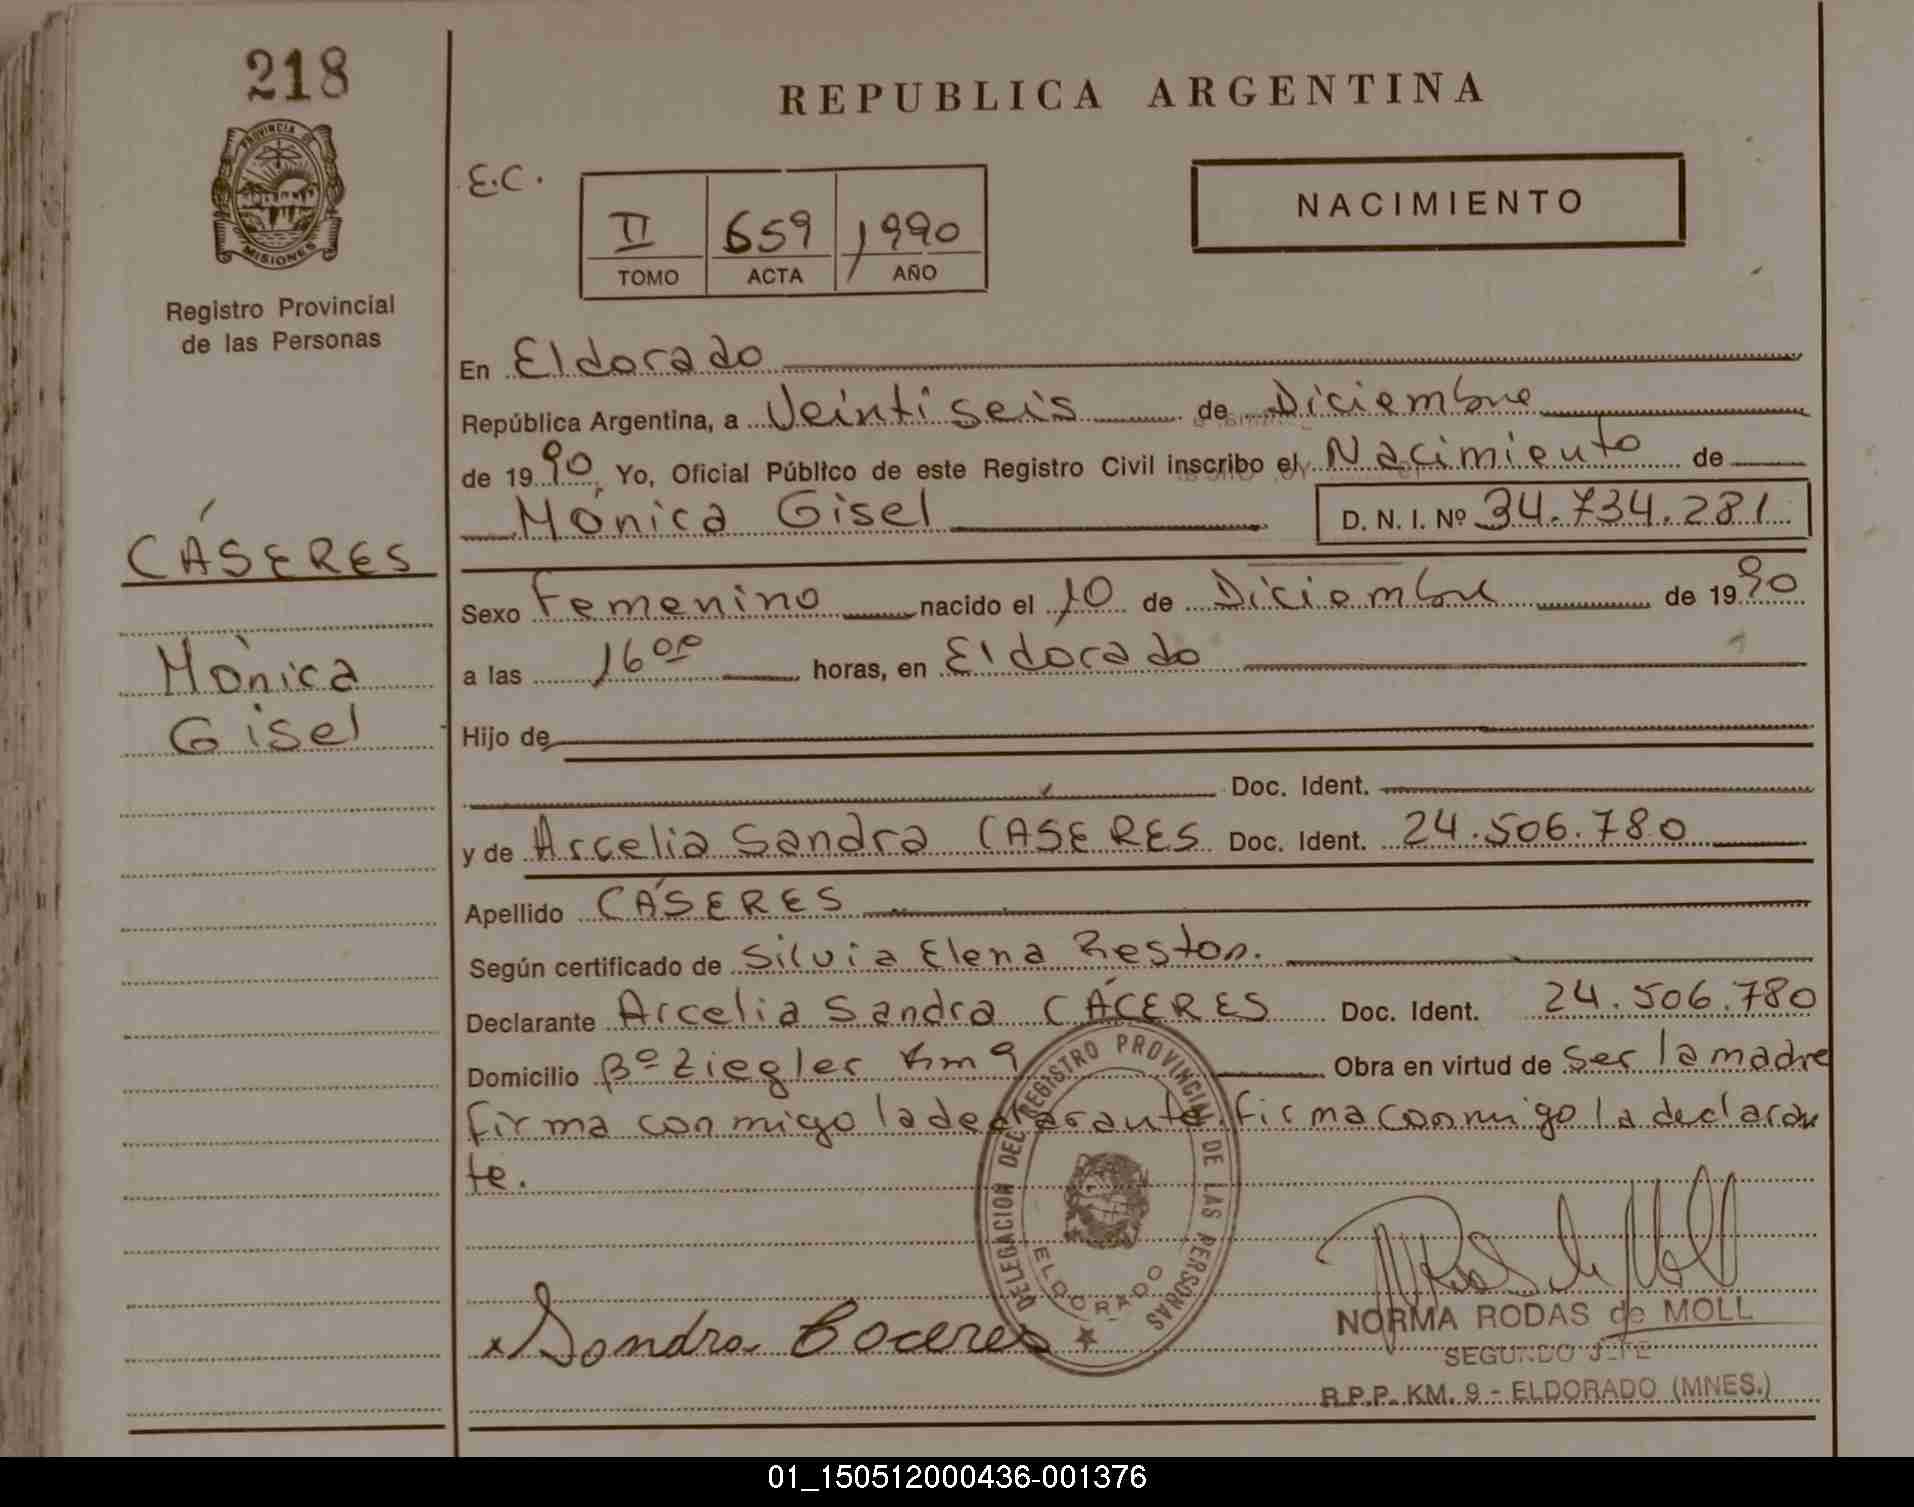 218
PROVINCIA DE
MISIONES
Registro Provincial
de las Personas
CÁSERES
Mónica
Gisel
REPUBLICA ARGENTINA
E.C.
II 659 1990
TOMO ACTA AÑO
NACIMIENTO
En Eldorado
República Argentina, a Veintiseis de Diciembre
de 1990 Yo, Oficial Público de este Registro Civil inscribo el Nacimiento de
Mónica Gisel D. N. I. Nº 34.734.281
Sexo Femenino nacido el 10 de Diciembre de 1990
a las 16 00 horas, en Eldorado
Hijo de
Doc. Ident.
y de Arcelia Sandra CASERES Doc. Ident. 24.506.780
Apellido CÁSERES
Según certificado de Silvia Elena Reston.
Declarante Arcelia Sandra CÁCERES Doc. Ident. 24.506.780
Domicilio Bº Ziegler Km 9 Obra en virtud de ser la madre
firma conmigo la declarante, firma conmigo la declaran
te.
DELEGACION DEL REGISTRO PROVINCIAL DE LAS PERSONAS
ELDORADO
x Sandra Caceres
NORMA RODAS de MOLL
SEGUNDO JEFE
R.P.P. KM. 9 - ELDORADO (MNES.)
01_150512000436-001376